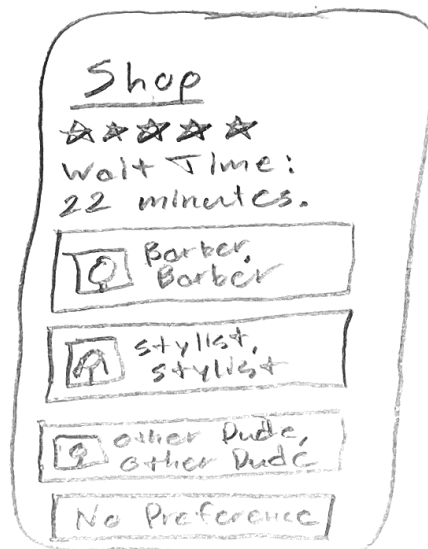 Shop
Wait Time:
22 minutes.
Barber,
Barber
stylist,
stylist
other Dude,
other Dude
No Preference